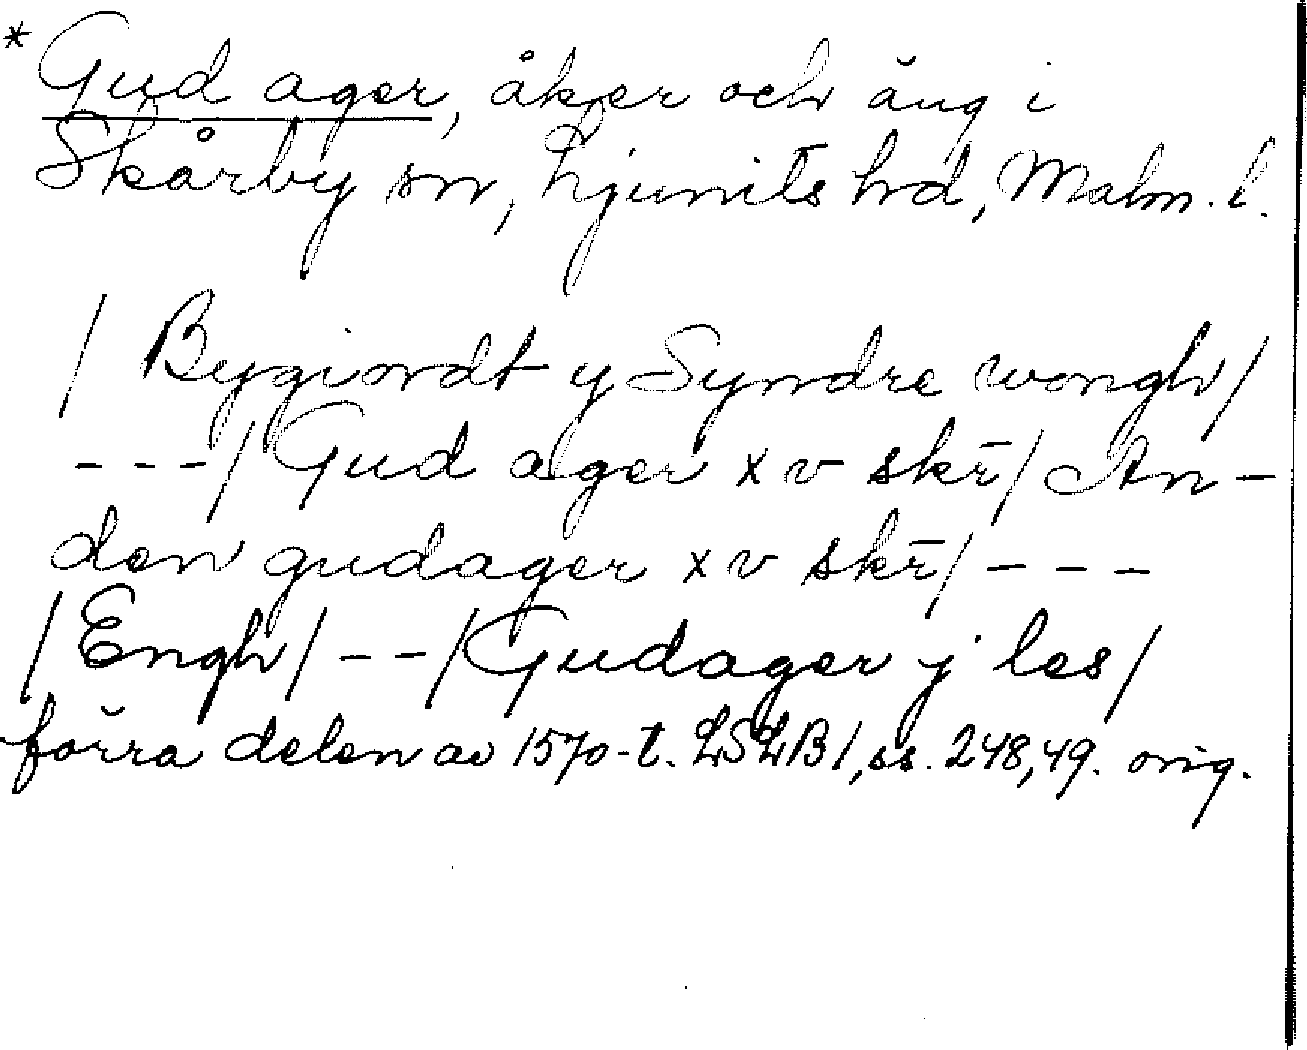 * Gud ager, åker och äng i
Skårby sn, Ljunits hd, Malm. l.
/ Bygiordt y Syndre wongh/
---/ Gud ager xv skr̄/ An-
den gudager xv skr̄/ ---
/ Engh/ --/ Gudager j les/
förra delen av 1570-t. LSLB1, ss. 248,49. orig.